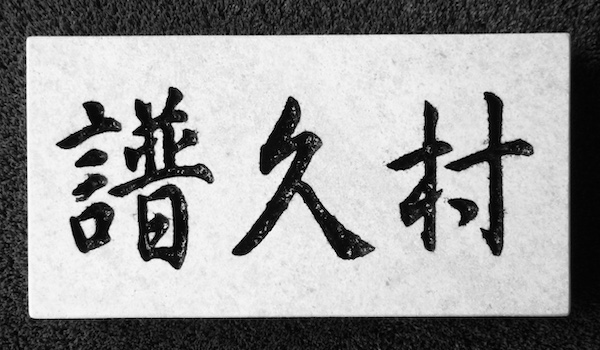 譜久村